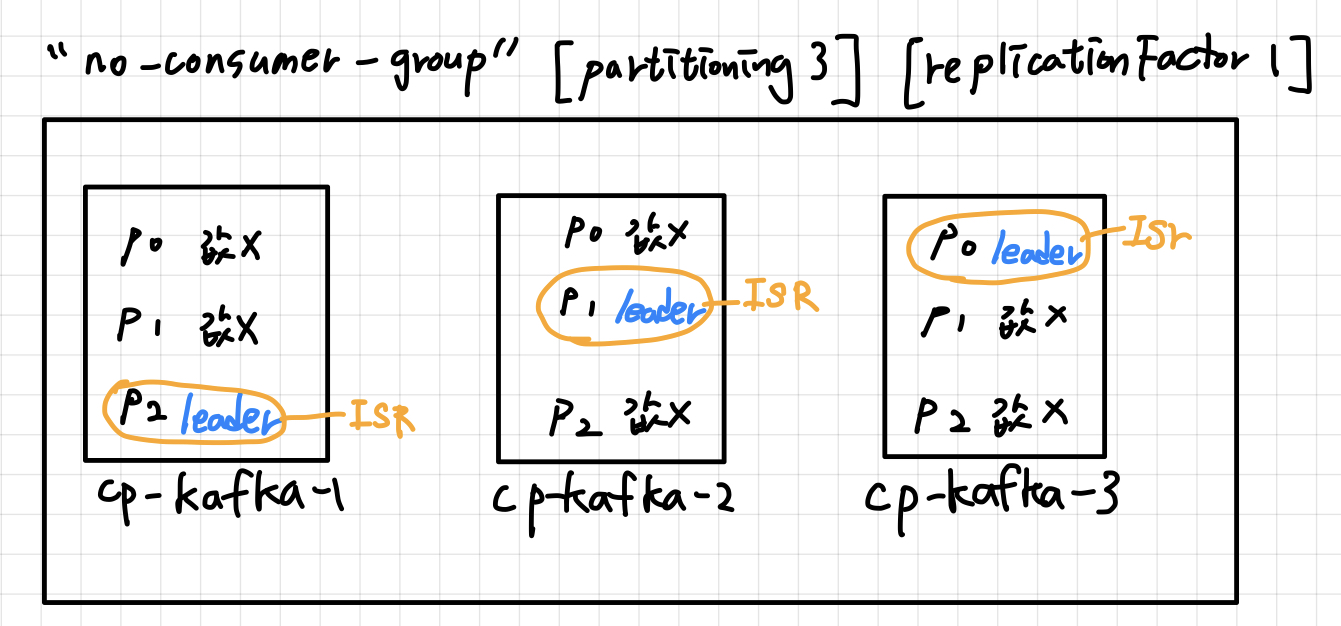 "no-consumer-group" [partitioning 3] [replicationFactor 1]
P0 값X
P1 값X
P2 leader ISR
cp-kafka-1
P0 값X
P1 leader ISR
P2 값X
cp-kafka-2
P0 leader ISr
P1 값X
P2 값X
cp-kafka-3